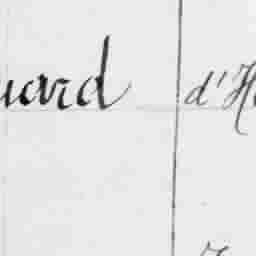 uard d'H